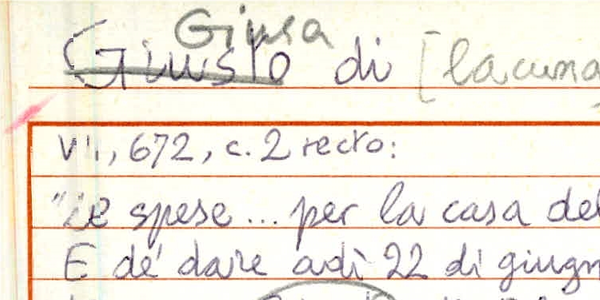 Giusa
Giusto di [lacuna
VII, 672, c. 2 recto:
"Le spese ... per la casa del
E de' dare adì 22 di giugn